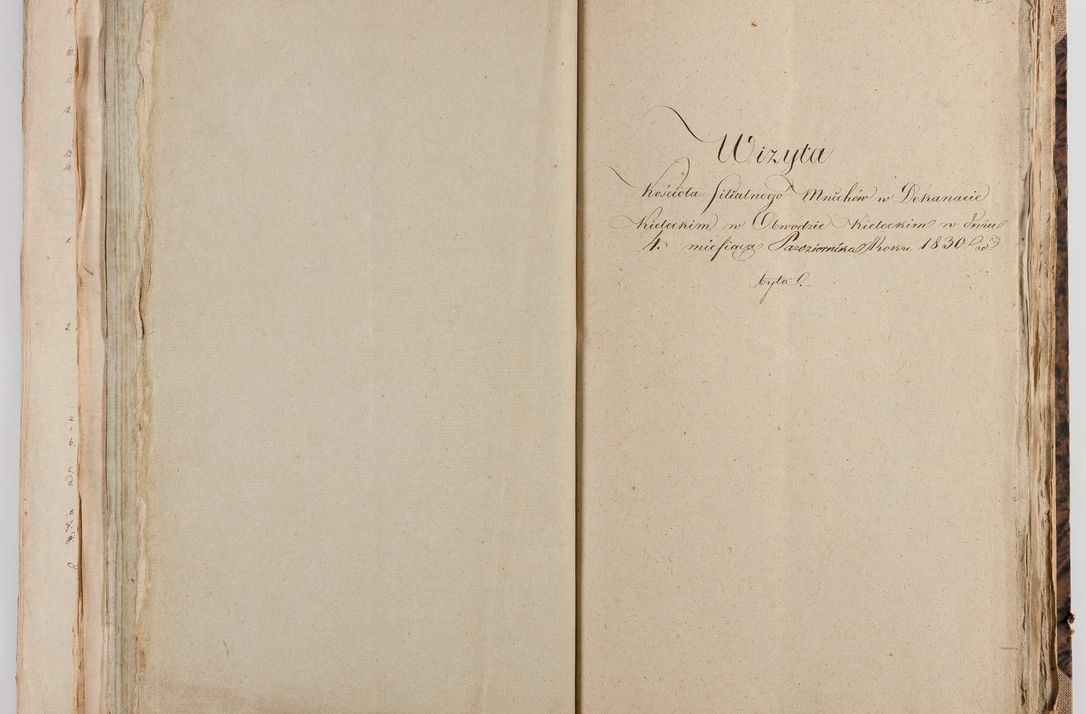 Wizyta
Kościoła filialnego Mnichów w Dekanacie
Kieleckim w Obwodzie Kieleckim w dniu
4. miesiąca Pazdziernika Roku 1830 od
byta.